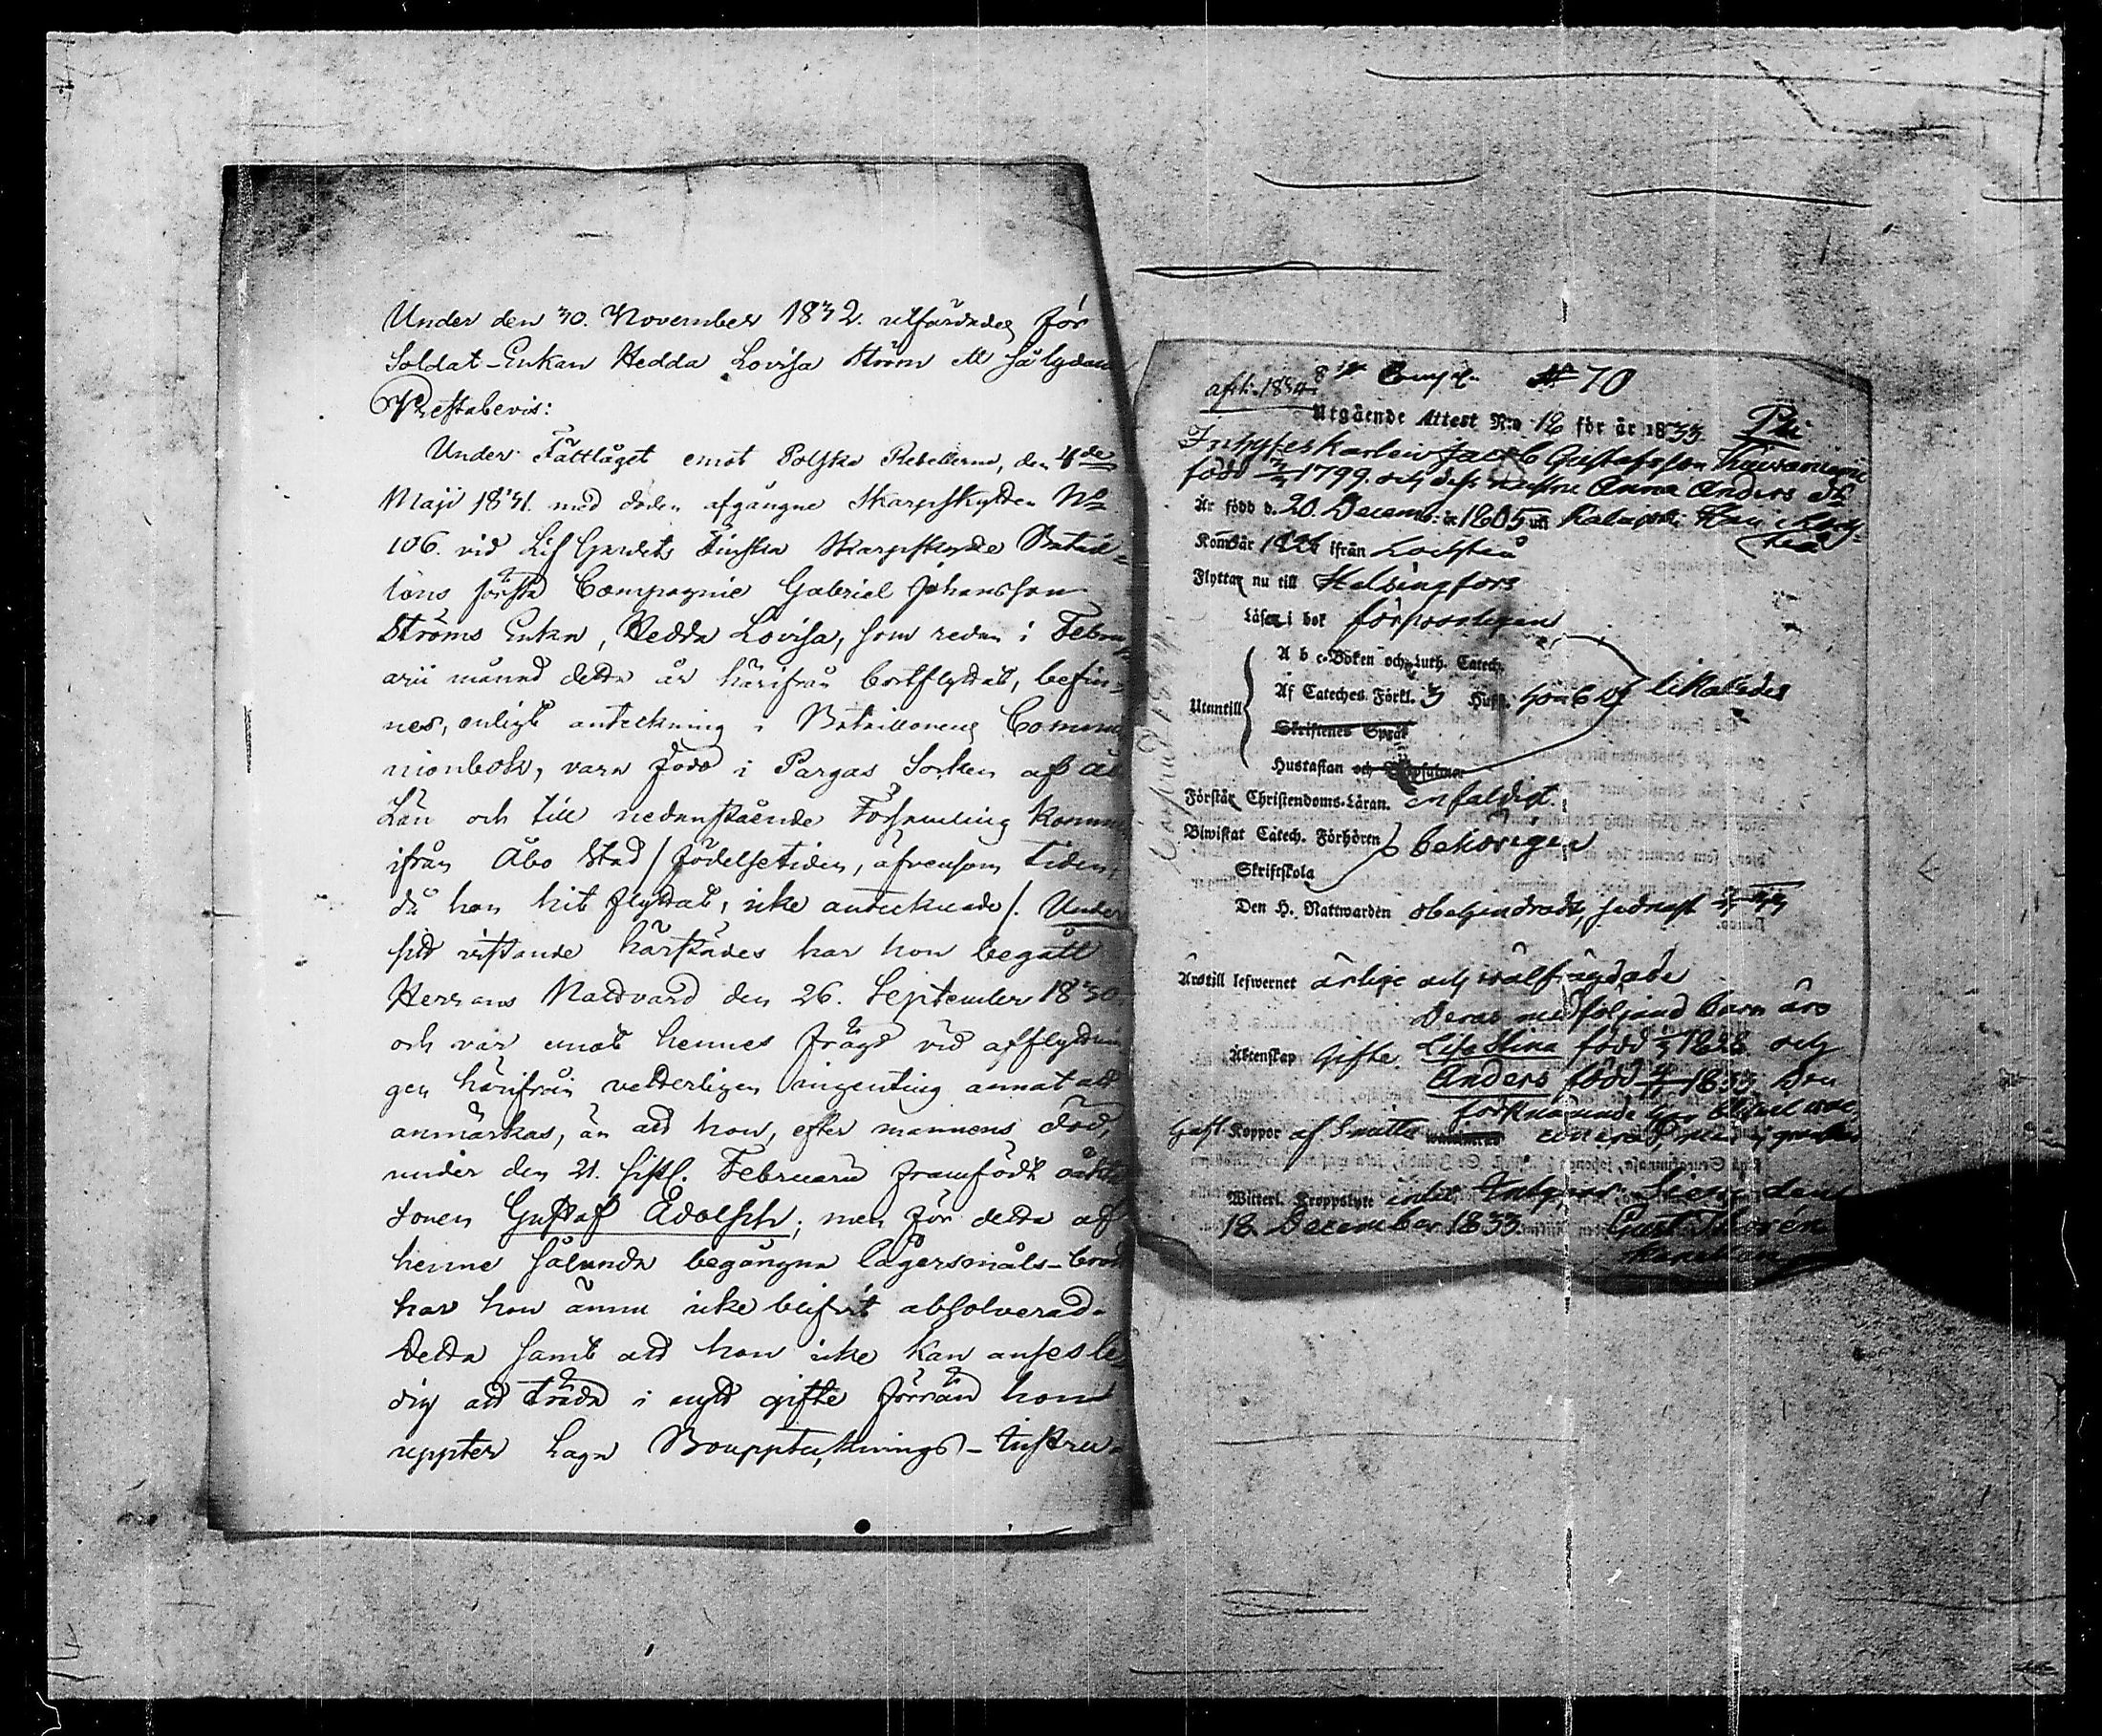 Under den 30. November 1832. utfärdades för
Soldat-Enkan Hedda Lovisa Ström ett så lydande
Prestabevis:
Under Fälttåget emot Polska Rebellerne, den 4de
Maji 1831. med döden afgångne Skarpskytten No
106. vid Lif Gardets Finska Skarpskytte Batail-
lons första Compagnie Gabriel Johansson
Ströms Enka, Hedda Lovisa, som redan i Febru-
arii månad detta år härifrån bortflyttat, befin-
nes, enligt anteckning i Bataillonens Commu-
nionbok, vara född i Pargas Socken af Åbo
Län och till nedanstående Församling kommen
ifrån Åbo Stad /födelsetiden, äfvensom tiden,
då hon hit flyttat, icke antecknade/. Under
sitt vistande härstädes har hon begått
Herrans Nattvard den 26. September 1830.
och var emot hennes frägd vid afflyttnin-
gen härifrån vetterligen ingenting annat att
anmärkas, än att hon, efter mannens död,
under den 21. sistl. Februarii framfödt oäkta
sonen Gustaf Adolph; men för detta af
henne sålunda begångna lägersmåls-brott
har hon ännu icke blifvit absolverad.
Detta samt att hon icke kan anses le-
dig att träda i nytt gifte förrän hon
uppter laga Boupptecknings-Instru-
8de Comp. N 70
Utgående Attest N:o 12 för år 1833
Inhyseskarlen Jacob Gustafsson
född 1799. och dess hustru Anna Anders dr
Är född d. 20. Decemb: år 1805 uti Kalajoki
Kom år 1826 ifrån Lochteå
Flyttar nu till Helsingfors
Läser i bok försvarligen
A b c-Boken och Luth. Catech.
Utantill Af Cateches. Förkl. 3 Hust. hon 6 likaledes
Skriftenes Språk
Hustaflan och
Förstår Christendoms-Läran. enfaldigt.
Biwistat Catech. Förhören behörigen
Skriftskola
Den H. Nattwarden obehindradt, sednast
Äro till lefwernet ärlige och wälfrägdade
Deras medföljand barn äro
Äktenskap Gifte. Lisa Stina född 1828 och
Anders född 1833 Den
förstnämnde
Haft Koppor af
Witterl. Kroppslyte intet
18 December 1833. Gust. Thorén